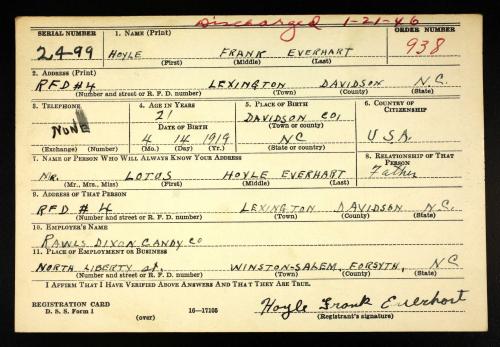 Discharged 1-21-46
SERIAL NUMBER 1. NAME (Print) ORDER NUMBER
2499 HOYLE FRANK EVERHART 938
(First) (Middle) (Last)
2. ADDRESS (Print)
RFD #4 LEXINGTON DAVIDSON N.C.
(Number and street or R. F. D. number) (Town) (County) (State)
3. TELEPHONE 4. AGE IN YEARS 5. PLACE OF BIRTH 6. COUNTRY OF CITIZENSHIP
NONE 21 DAVIDSON CO,
DATE OF BIRTH (Town or county)
4 14 1919 NC U.S.A.
(Exchange) (Number) (Mo.) (Day) (Yr.) (State or country)
7. NAME OF PERSON WHO WILL ALWAYS KNOW YOUR ADDRESS 8. RELATIONSHIP OF THAT PERSON
MR. LOTUS HOYLE EVERHART Father
(Mr., Mrs., Miss) (First) (Middle) (Last)
9. ADDRESS OF THAT PERSON
RFD #4 LEXINGTON DAVIDSON N.C.
(Number and street or R. F. D. number) (Town) (County) (State)
10. EMPLOYER'S NAME
RAWLS DIXON CANDY CO
11. PLACE OF EMPLOYMENT OR BUSINESS
NORTH LIBERTY st. WINSTON-SALEM, FORSYTH, NC
(Number and street or R. F. D. number) (Town) (County) (State)
I AFFIRM THAT I HAVE VERIFIED ABOVE ANSWERS AND THAT THEY ARE TRUE.
REGISTRATION CARD
D. S. S. Form 1 (over) 16—17105 Hoyle Frank Everhart
(Registrant's signature)